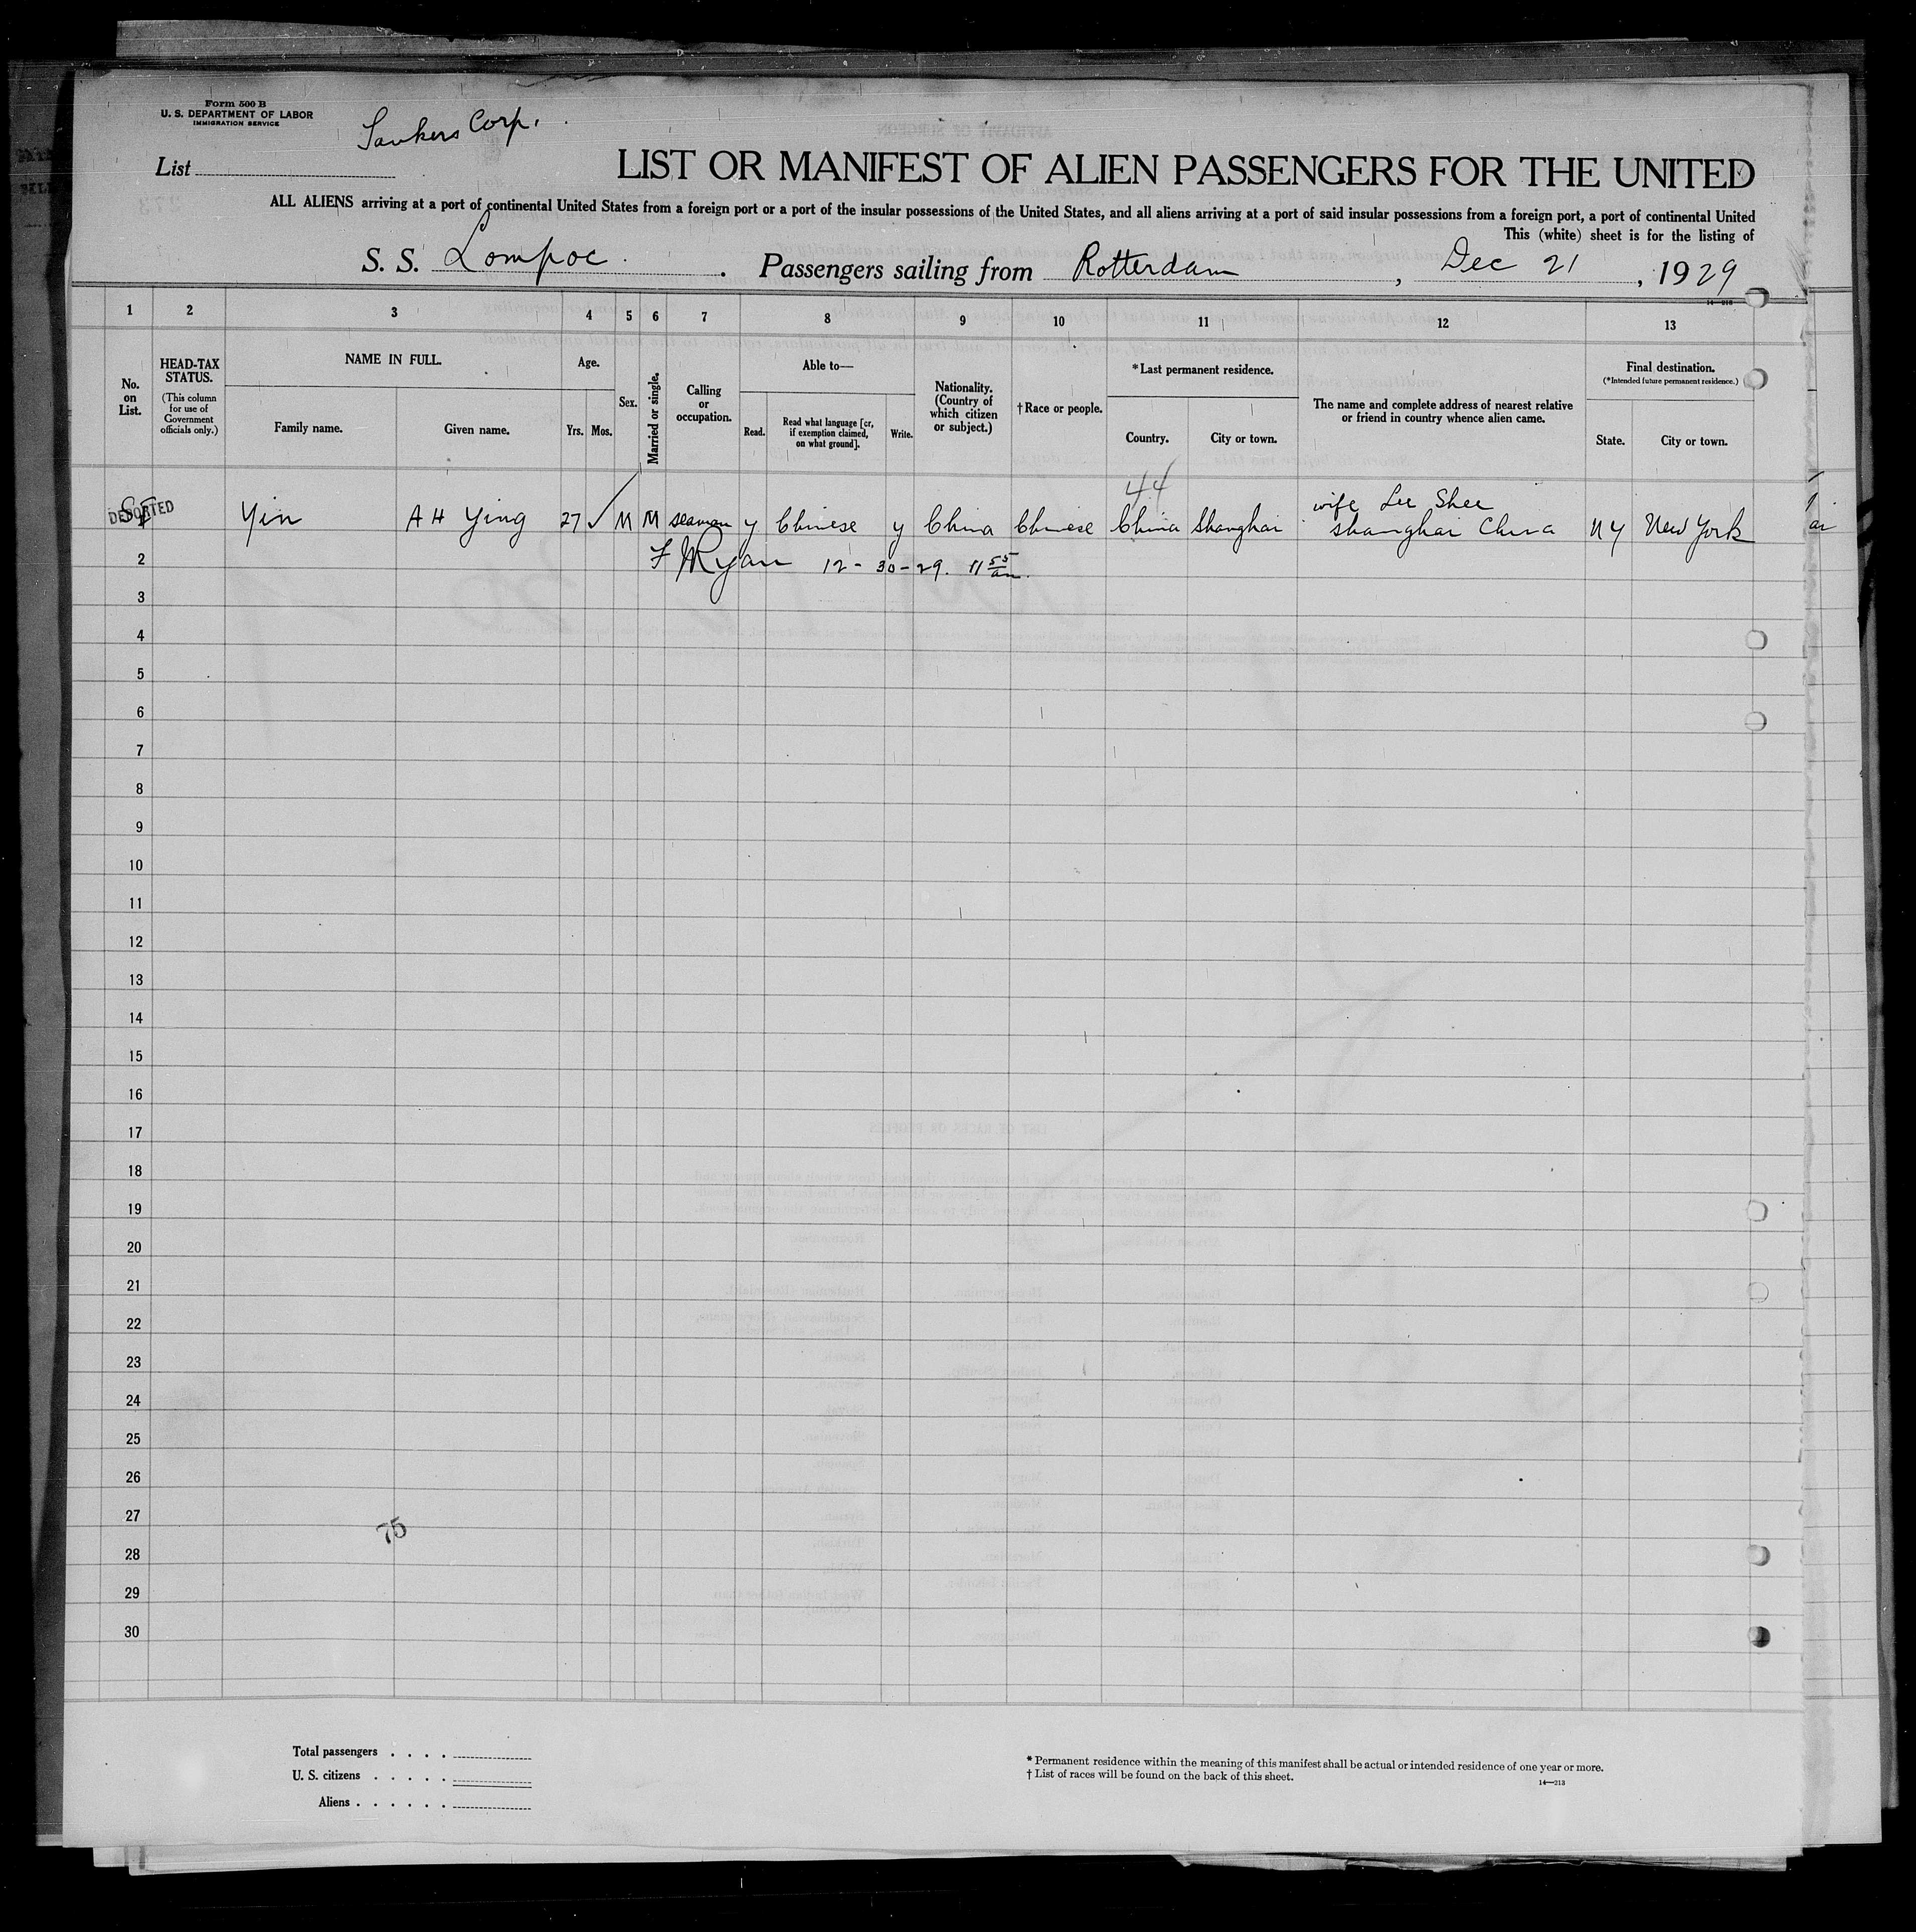 Form 500 B
U. S. DEPARTMENT OF LABOR
IMMIGRATION SERVICE
Corp.
List
LIST OR MANIFEST OF ALIEN PASSENGERS FOR THE UNITED
ALL ALIENS arriving at a port of continental United States from a foreign port or a port of the insular possessions of the United States, and all aliens arriving at a port of said insular possessions from a foreign port, a port of continental United
This (white) sheet is for the listing of
S. S. Lompoc. Passengers sailing from Rotterdam, Dec 21, 1929
14—213
1 2 3 4 5 6 7 8 9 10 11 12 13
No. on List.
HEAD-TAX STATUS.
(This column for use of Government officials only.)
NAME IN FULL.
Family name. Given name.
Age.
Yrs. Mos.
Sex.
Married or single.
Calling or occupation.
Able to—
Read. Read what language [or, if exemption claimed, on what ground]. Write.
Nationality. (Country of which citizen or subject.)
†Race or people.
*Last permanent residence.
Country. City or town.
The name and complete address of nearest relative or friend in country whence alien came.
Final destination.
(*Intended future permanent residence.)
State. City or town.
44
DEPORTED
SI
Yin AH Ying 27 ✓ M M seaman y Chinese y China Chinese China Shanghai wife Lee Shee Shanghai China NY New York
F M Ryan 12-30-29. 11 55 am.
2
3
4
5
6
7
8
9
10
11
12
13
14
15
16
17
18
19
20
21
22
23
24
25
26
27
75
28
29
30
Total passengers . . . .
U. S. citizens . . . . .
Aliens . . . . . .
* Permanent residence within the meaning of this manifest shall be actual or intended residence of one year or more.
† List of races will be found on the back of this sheet.
14—213